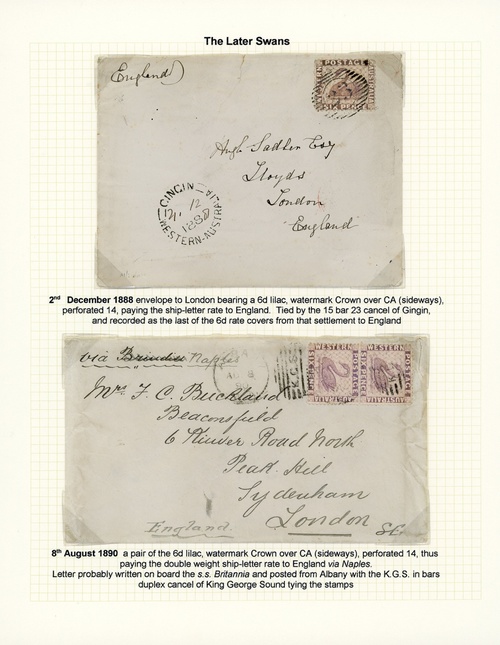 The Later Swans
England
WESTERN POSTAGE AUSTRALIA
SIX PENCE
Hugh Sadler Esq
Lloyds
London
England
GINGIN
12
1888
WESTERN-AUSTRALIA
2nd December 1888 envelope to London bearing a 6d lilac, watermark Crown over CA (sideways),
perforated 14, paying the ship-letter rate to England. Tied by the 15 bar 23 cancel of Gingin,
and recorded as the last of the 6d rate covers from that settlement to England
via Brindisi Naples
AU 8
K.G.S.
WESTERN POSTAGE AUSTRALIA SIX PENCE
WESTERN POSTAGE AUSTRALIA SIX PENCE
Mrs F. C. Buckland
Beaconsfield
6 Road North
Peak Hill
Sydenham
London
S.E.
England.
8th August 1890 a pair of the 6d lilac, watermark Crown over CA (sideways), perforated 14, thus
paying the double weight ship-letter rate to England via Naples.
Letter probably written on board the s.s. Britannia and posted from Albany with the K.G.S. in bars
duplex cancel of King George Sound tying the stamps